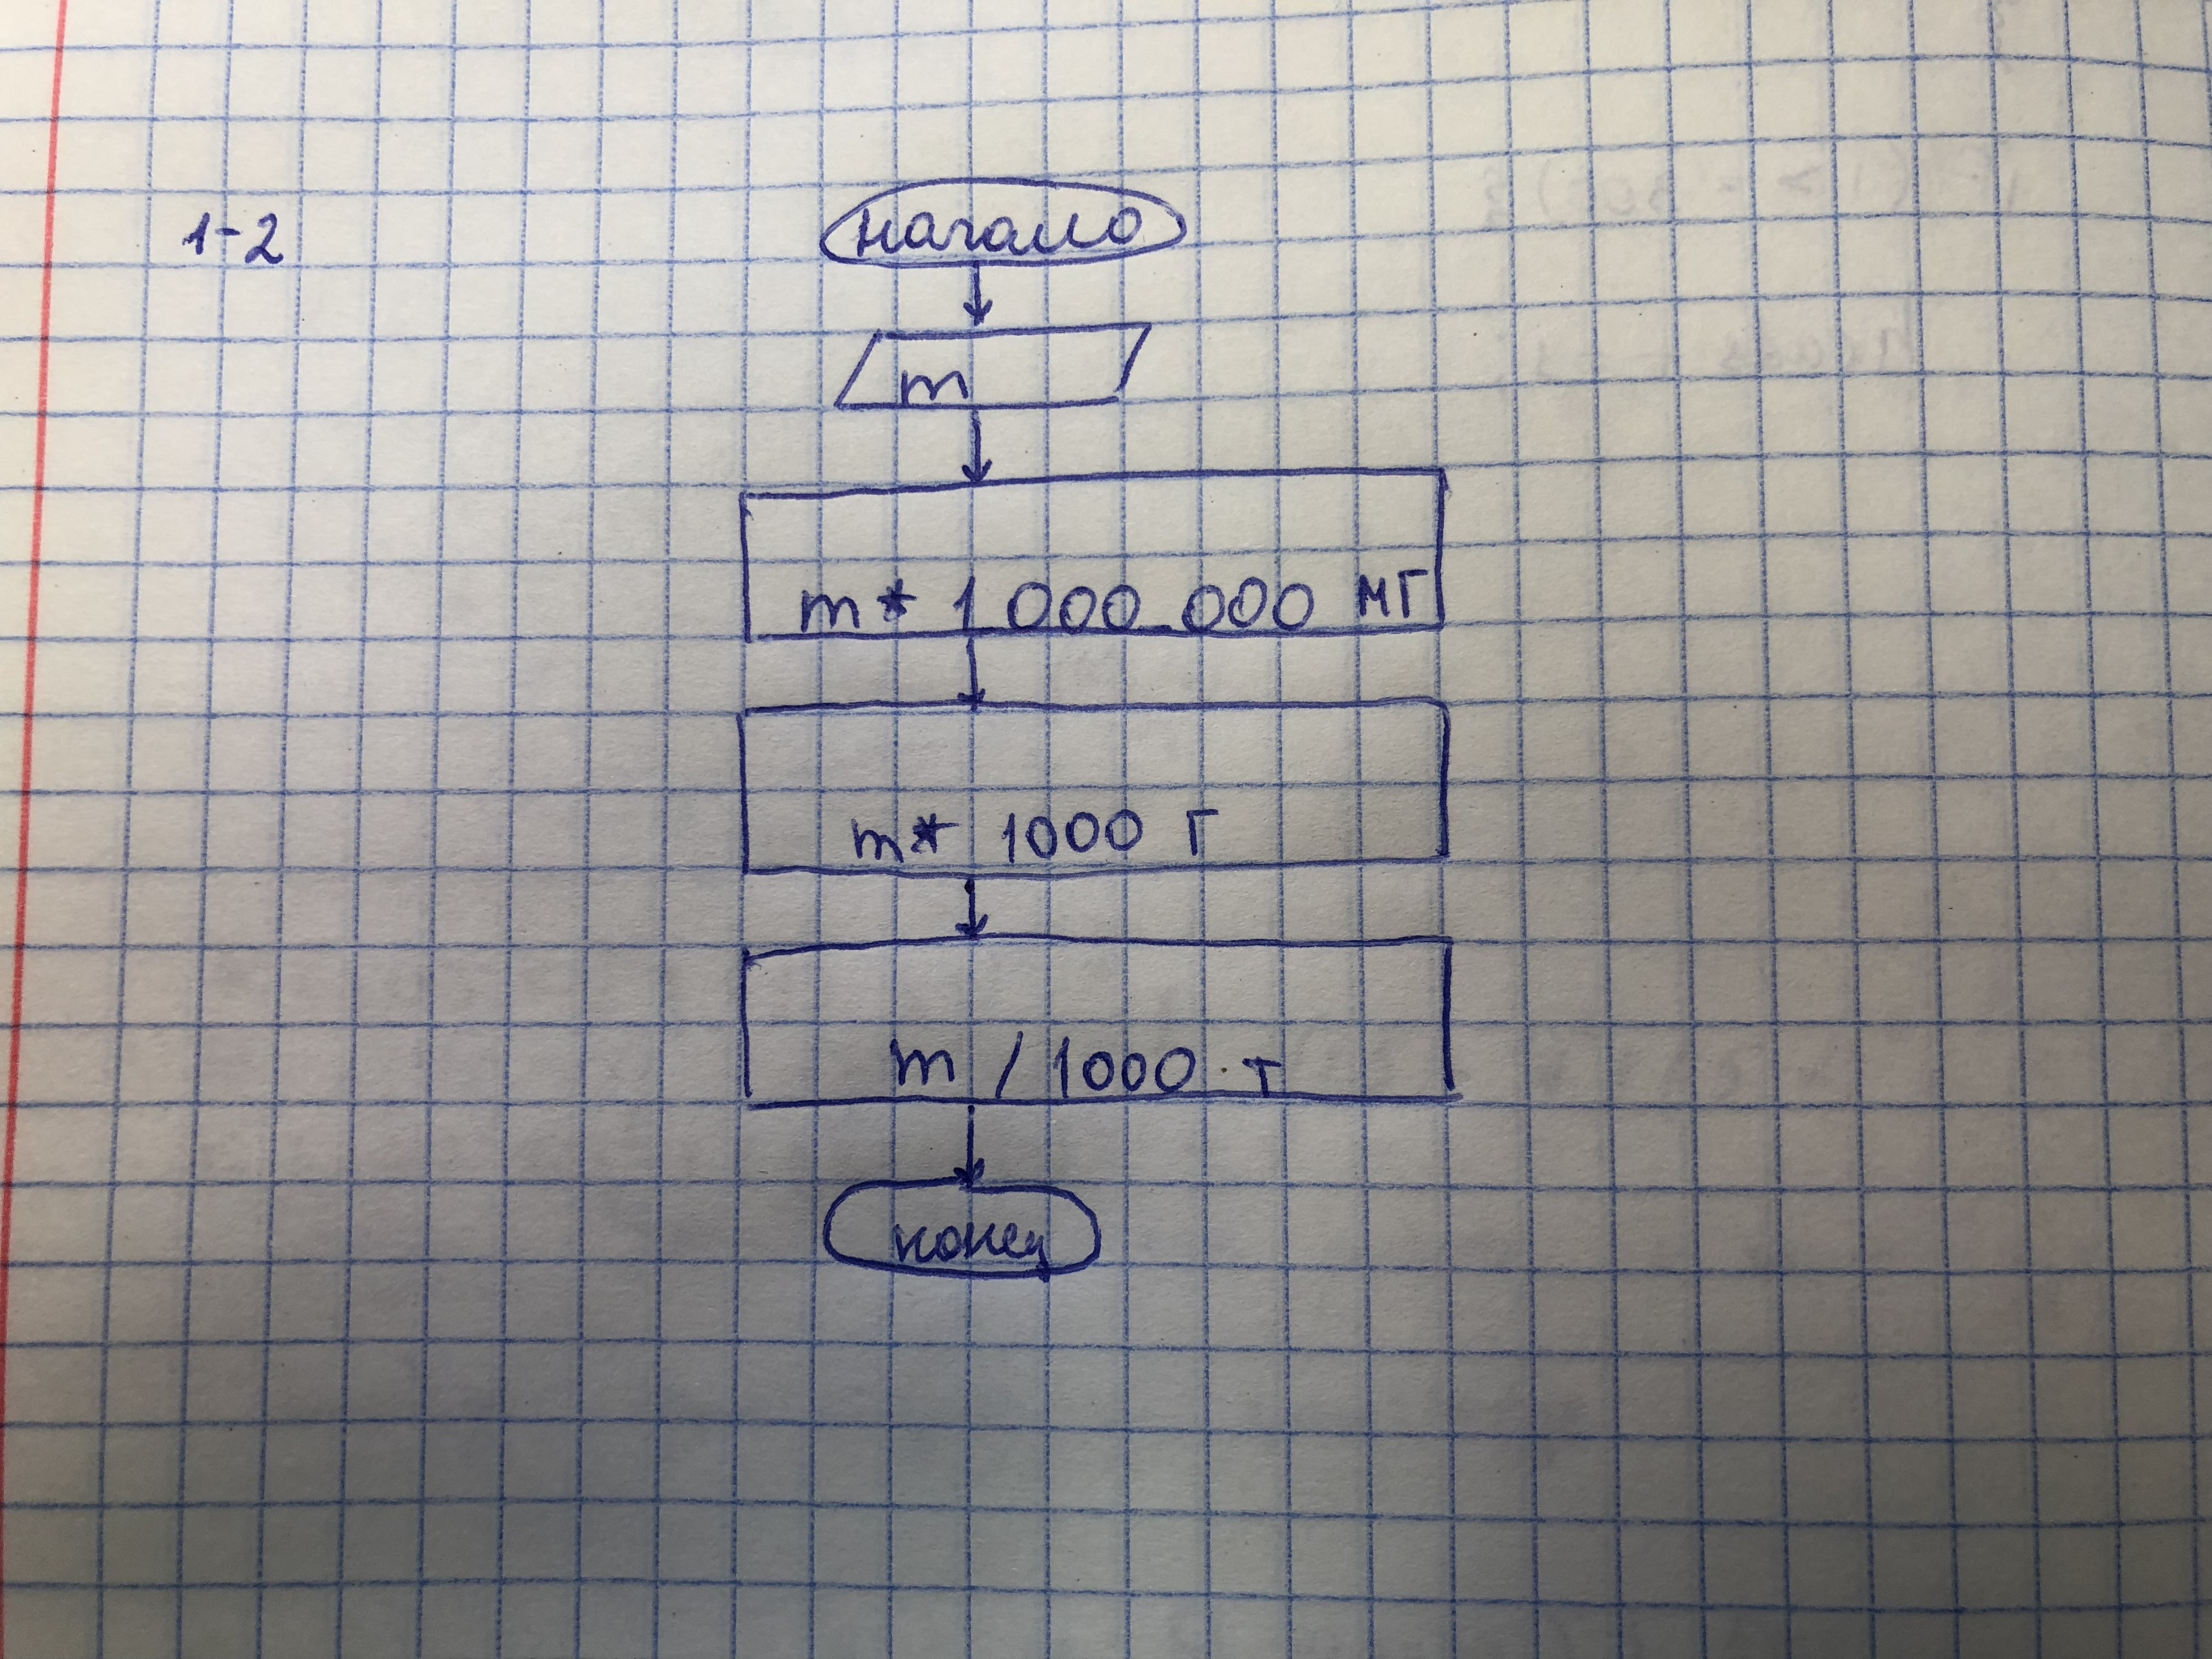 1-2
начало
m
m * 1 000 000 мг
m * 1000 г
m / 1000 т
конец